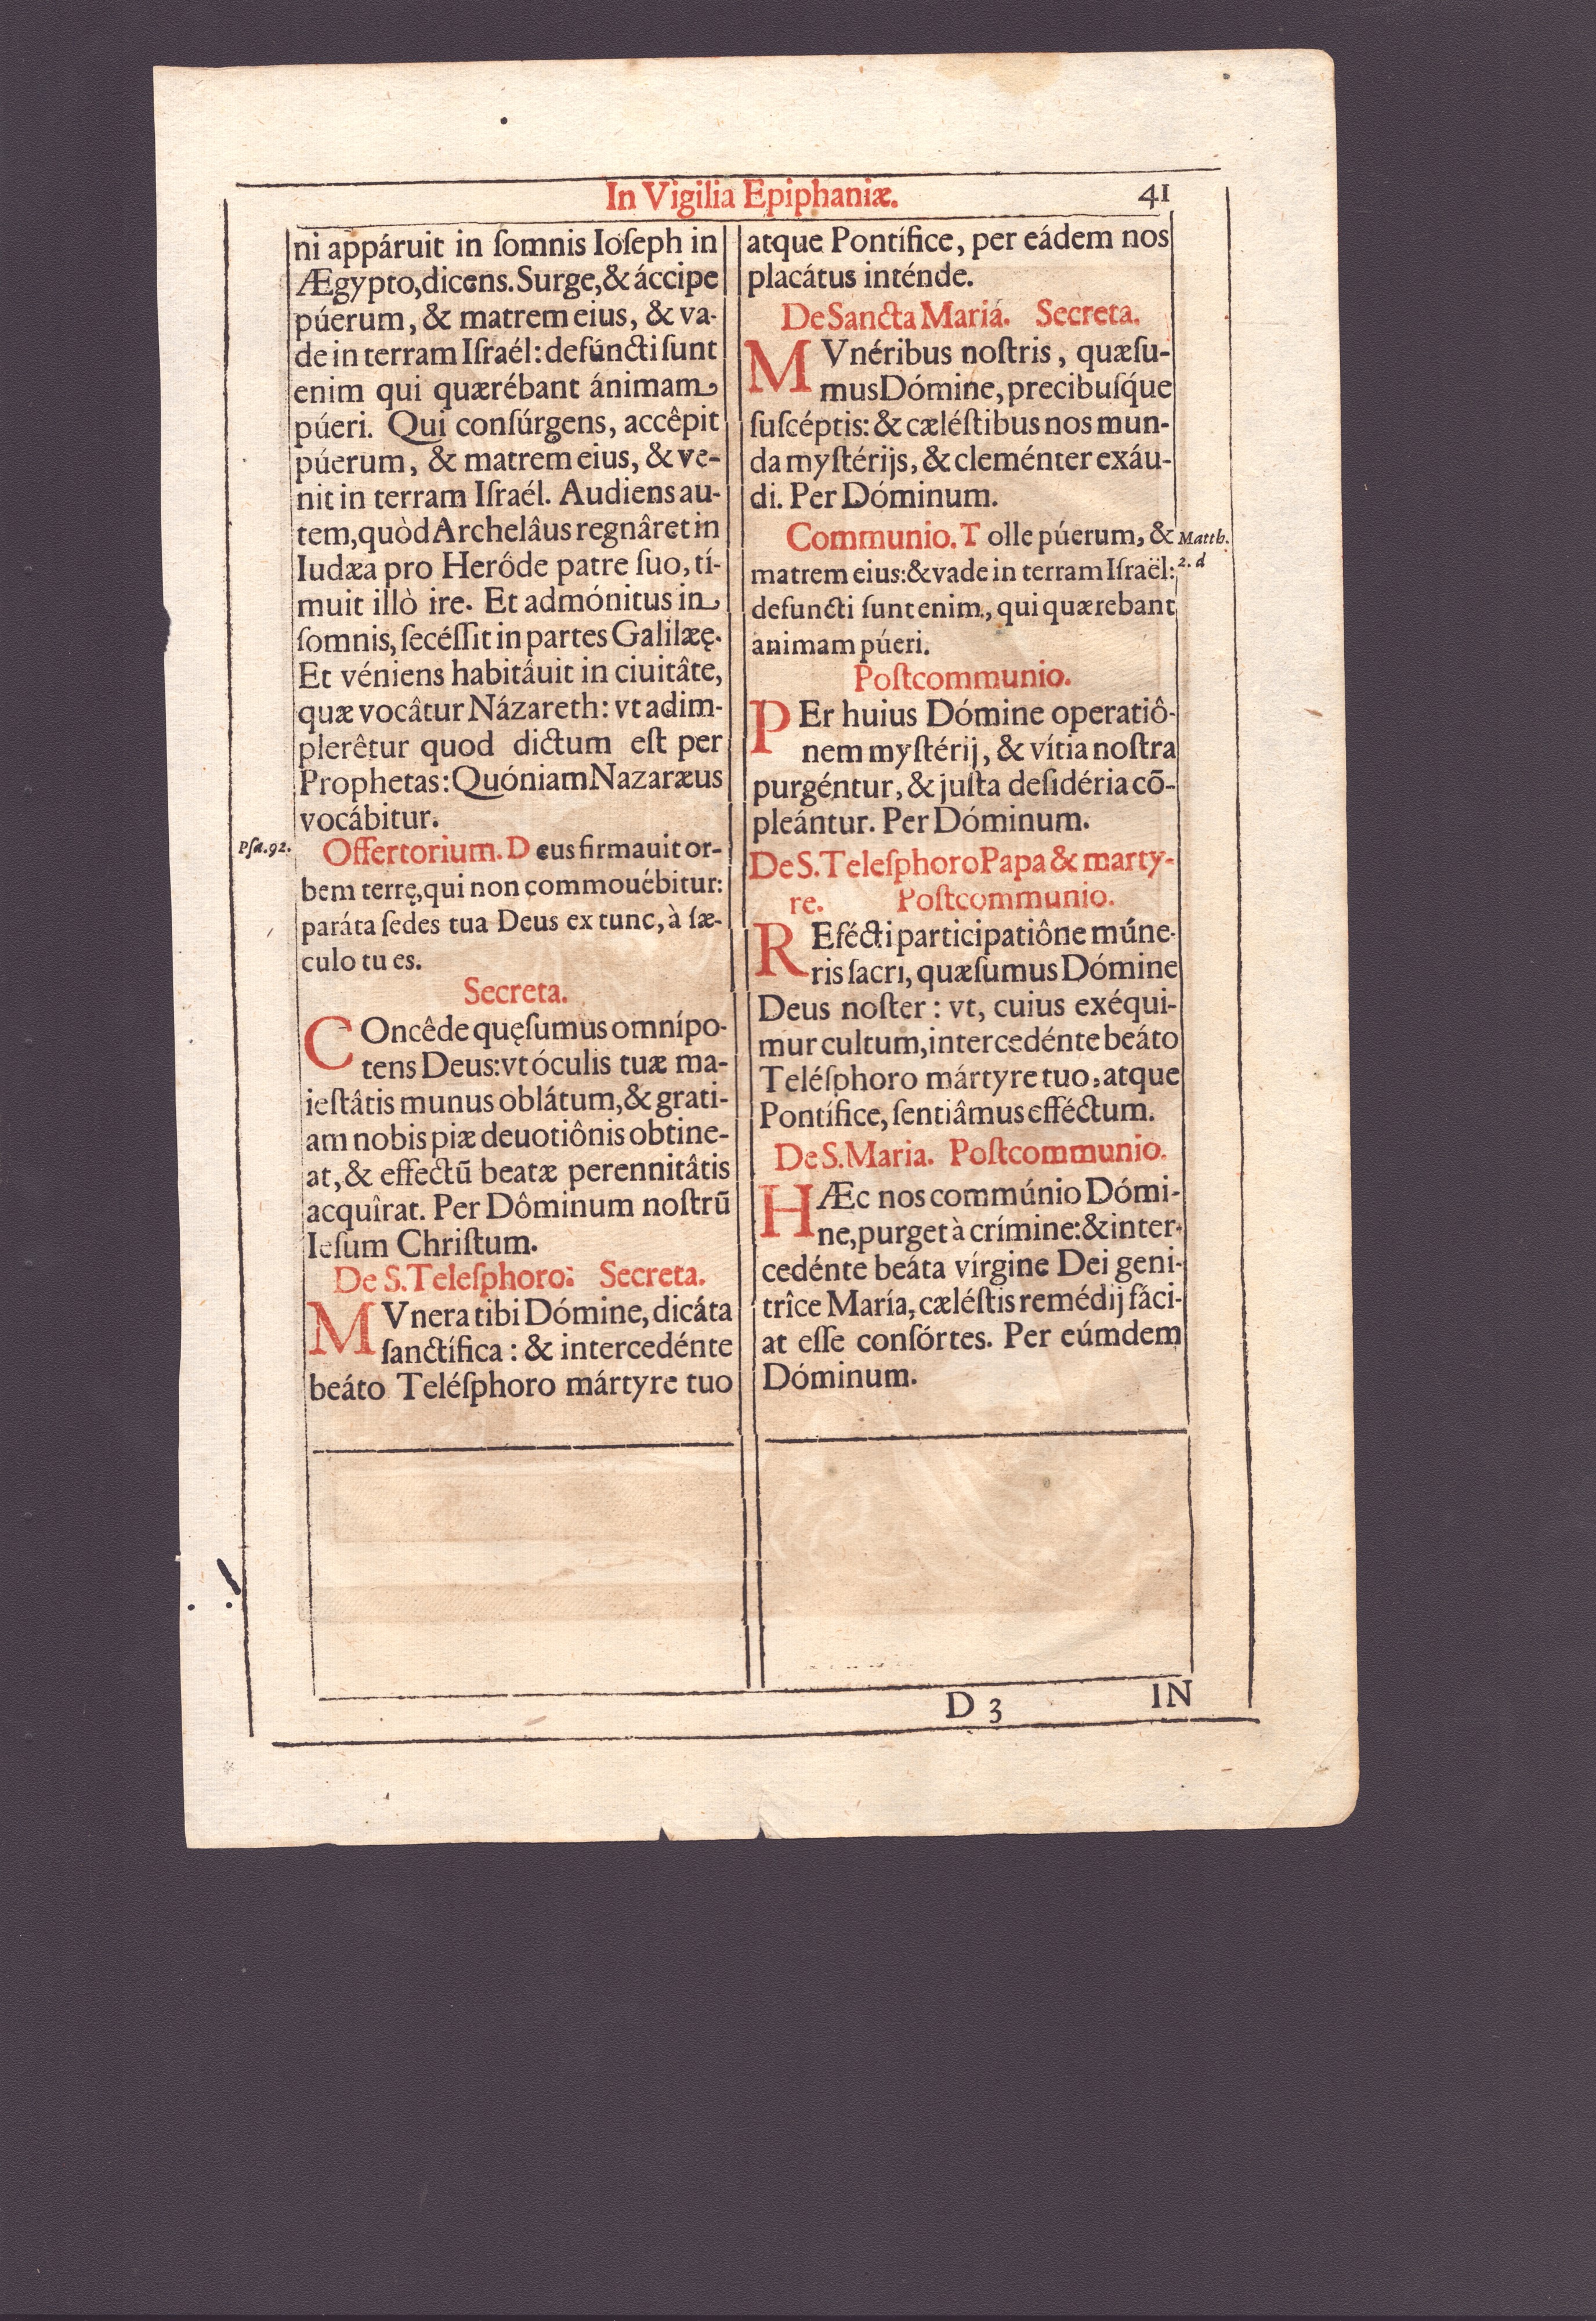 In Vigilia Epiphaniæ.
41
ni appáruit in ſomnis Ioſeph in
Ægypto,dicens. Surge,& áccipe
púerum, & matrem eius, & va-
de in terram Iſraél: defúncti ſunt
enim qui quærébant ánimam
púeri. Qui conſúrgens, accêpit
púerum, & matrem eius, & ve-
nit in terram Iſraél. Audiens au-
tem,quòd Archelâus regnâret in
Iudæa pro Heróde patre ſuo, tí-
muit illò ire. Et admónitus in
ſomnis, ſecéſſit in partes Galilæę.
Et véniens habitáuit in ciuitâte,
quæ vocâtur Názareth: vt adim-
plerêtur quod dictum eſt per
Prophetas: Quóniam Nazaræus
vocábitur.
Pſa.92.
Offertorium. D eus firmauit or-
bem terrę,qui non commouébitur:
paráta ſedes tua Deus ex tunc, à ſæ-
culo tu es.
Secreta.
COncêde quęſumus omnípo-
tens Deus: vt óculis tuæ ma-
ieſtâtis munus oblátum,& grati-
am nobis piæ deuotiônis obtine-
at, & effectũ beatæ perennitâtis
acquîrat. Per Dôminum noſtrũ
Ieſum Chriſtum.
De S. Teleſphoro: Secreta.
MVnera tibi Dómine, dicáta
ſanctífica : & intercedénte
beáto Teléſphoro mártyre tuo
atque Pontífice, per eádem nos
placátus inténde.
De Sancta Mariá. Secreta.
MVnéribus noſtris, quæſu-
mus Dómine, precibuſq́ue
ſuſcéptis: & cæléſtibus nos mun-
da myſtérijs, & cleménter exáu-
di. Per Dóminum.
Communio. T olle púerum, &
Matth.
2. d
matrem eius: & vade in terram Iſraël:
defuncti ſunt enim, qui quærebant
animam púeri.
Poſtcommunio.
PEr huius Dómine operatiô-
nem myſtérij, & vítia noſtra
purgéntur, & juſta deſidéria cõ-
pleántur. Per Dóminum.
De S. Teleſphoro Papa & marty-
re. Poſtcommunio.
REfécti participatiône múne-
ris ſacri, quæſumus Dómine
Deus noſter : vt, cuius exéqui-
mur cultum,intercedénte beáto
Teléſphoro mártyre tuo, atque
Pontífice, ſentiâmus efféctum.
De S. Maria. Poſtcommunio.
HÆc nos commúnio Dómi-
ne,purget à crímine: & inter-
cedénte beáta vírgine Dei geni-
trîce María, cæléſtis remédij fáci-
at eſſe conſórtes. Per eúmdem
Dóminum.
D 3
IN